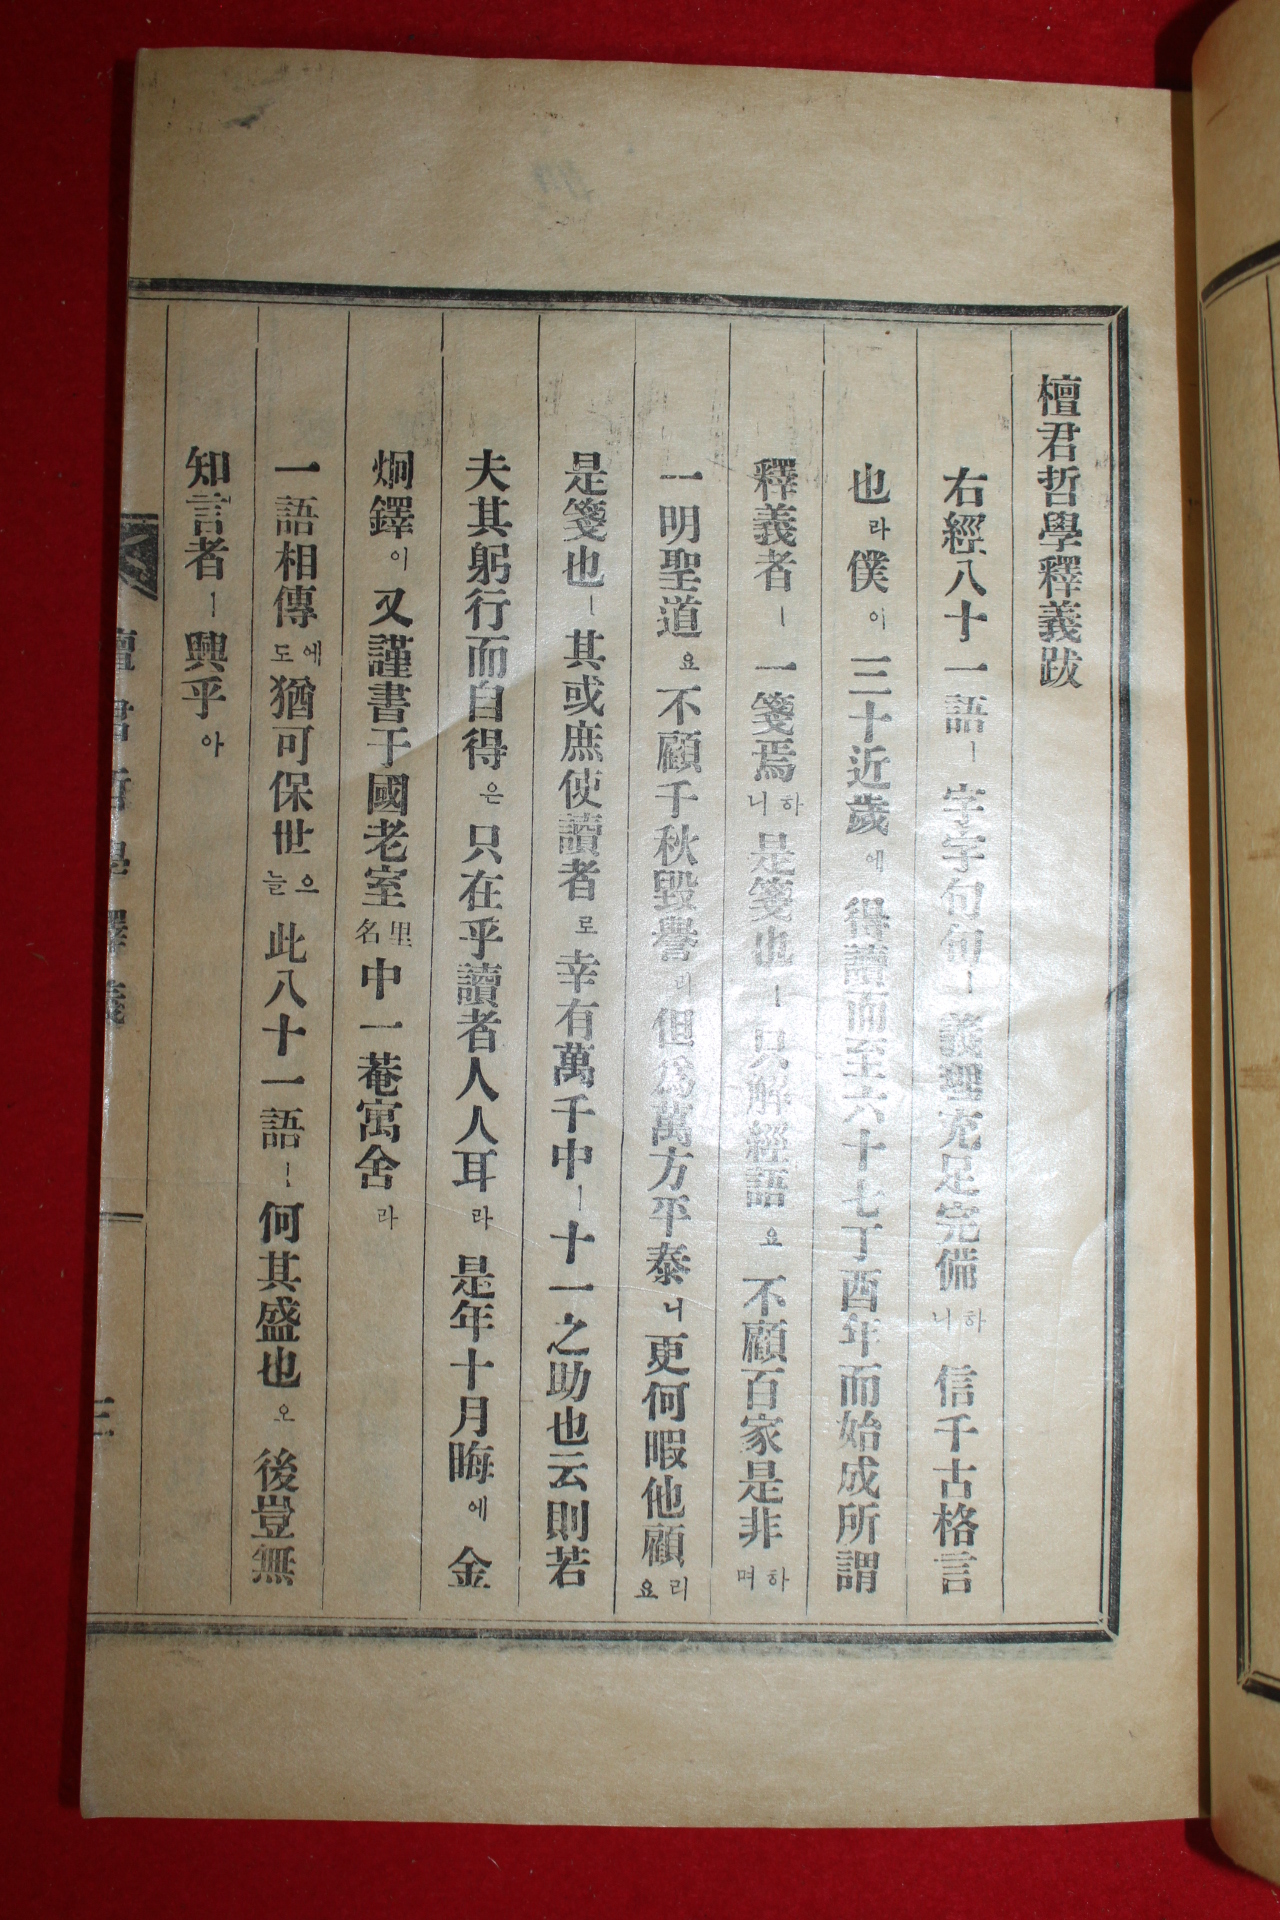 檀君哲學釋義跋
右經八十一語ㅣ字字句句ㅣ義理充足完備하니信千古格言
也라僕이三十近歲에得讀而至六十七丁酉年而始成所謂
釋義者ㅣ一箋焉하니是箋也ㅣ只解經語요不顧百家是非하며
一明聖道요不顧千秋毀譽리但爲萬方平泰니更何暇他顧리요
是箋也ㅣ其或庶使讀者로幸有萬千中ㅣ十一之助也云則若
夫其躬行而自得은只在乎讀者人人耳라是年十月晦에金
炯鐸이又謹書于國老室里名中一菴寓舍라
一語相傳에도猶可保世으늘此八十一語ㅣ何其盛也오後豈無
知言者ㅣ興乎아
檀君哲學釋義
三